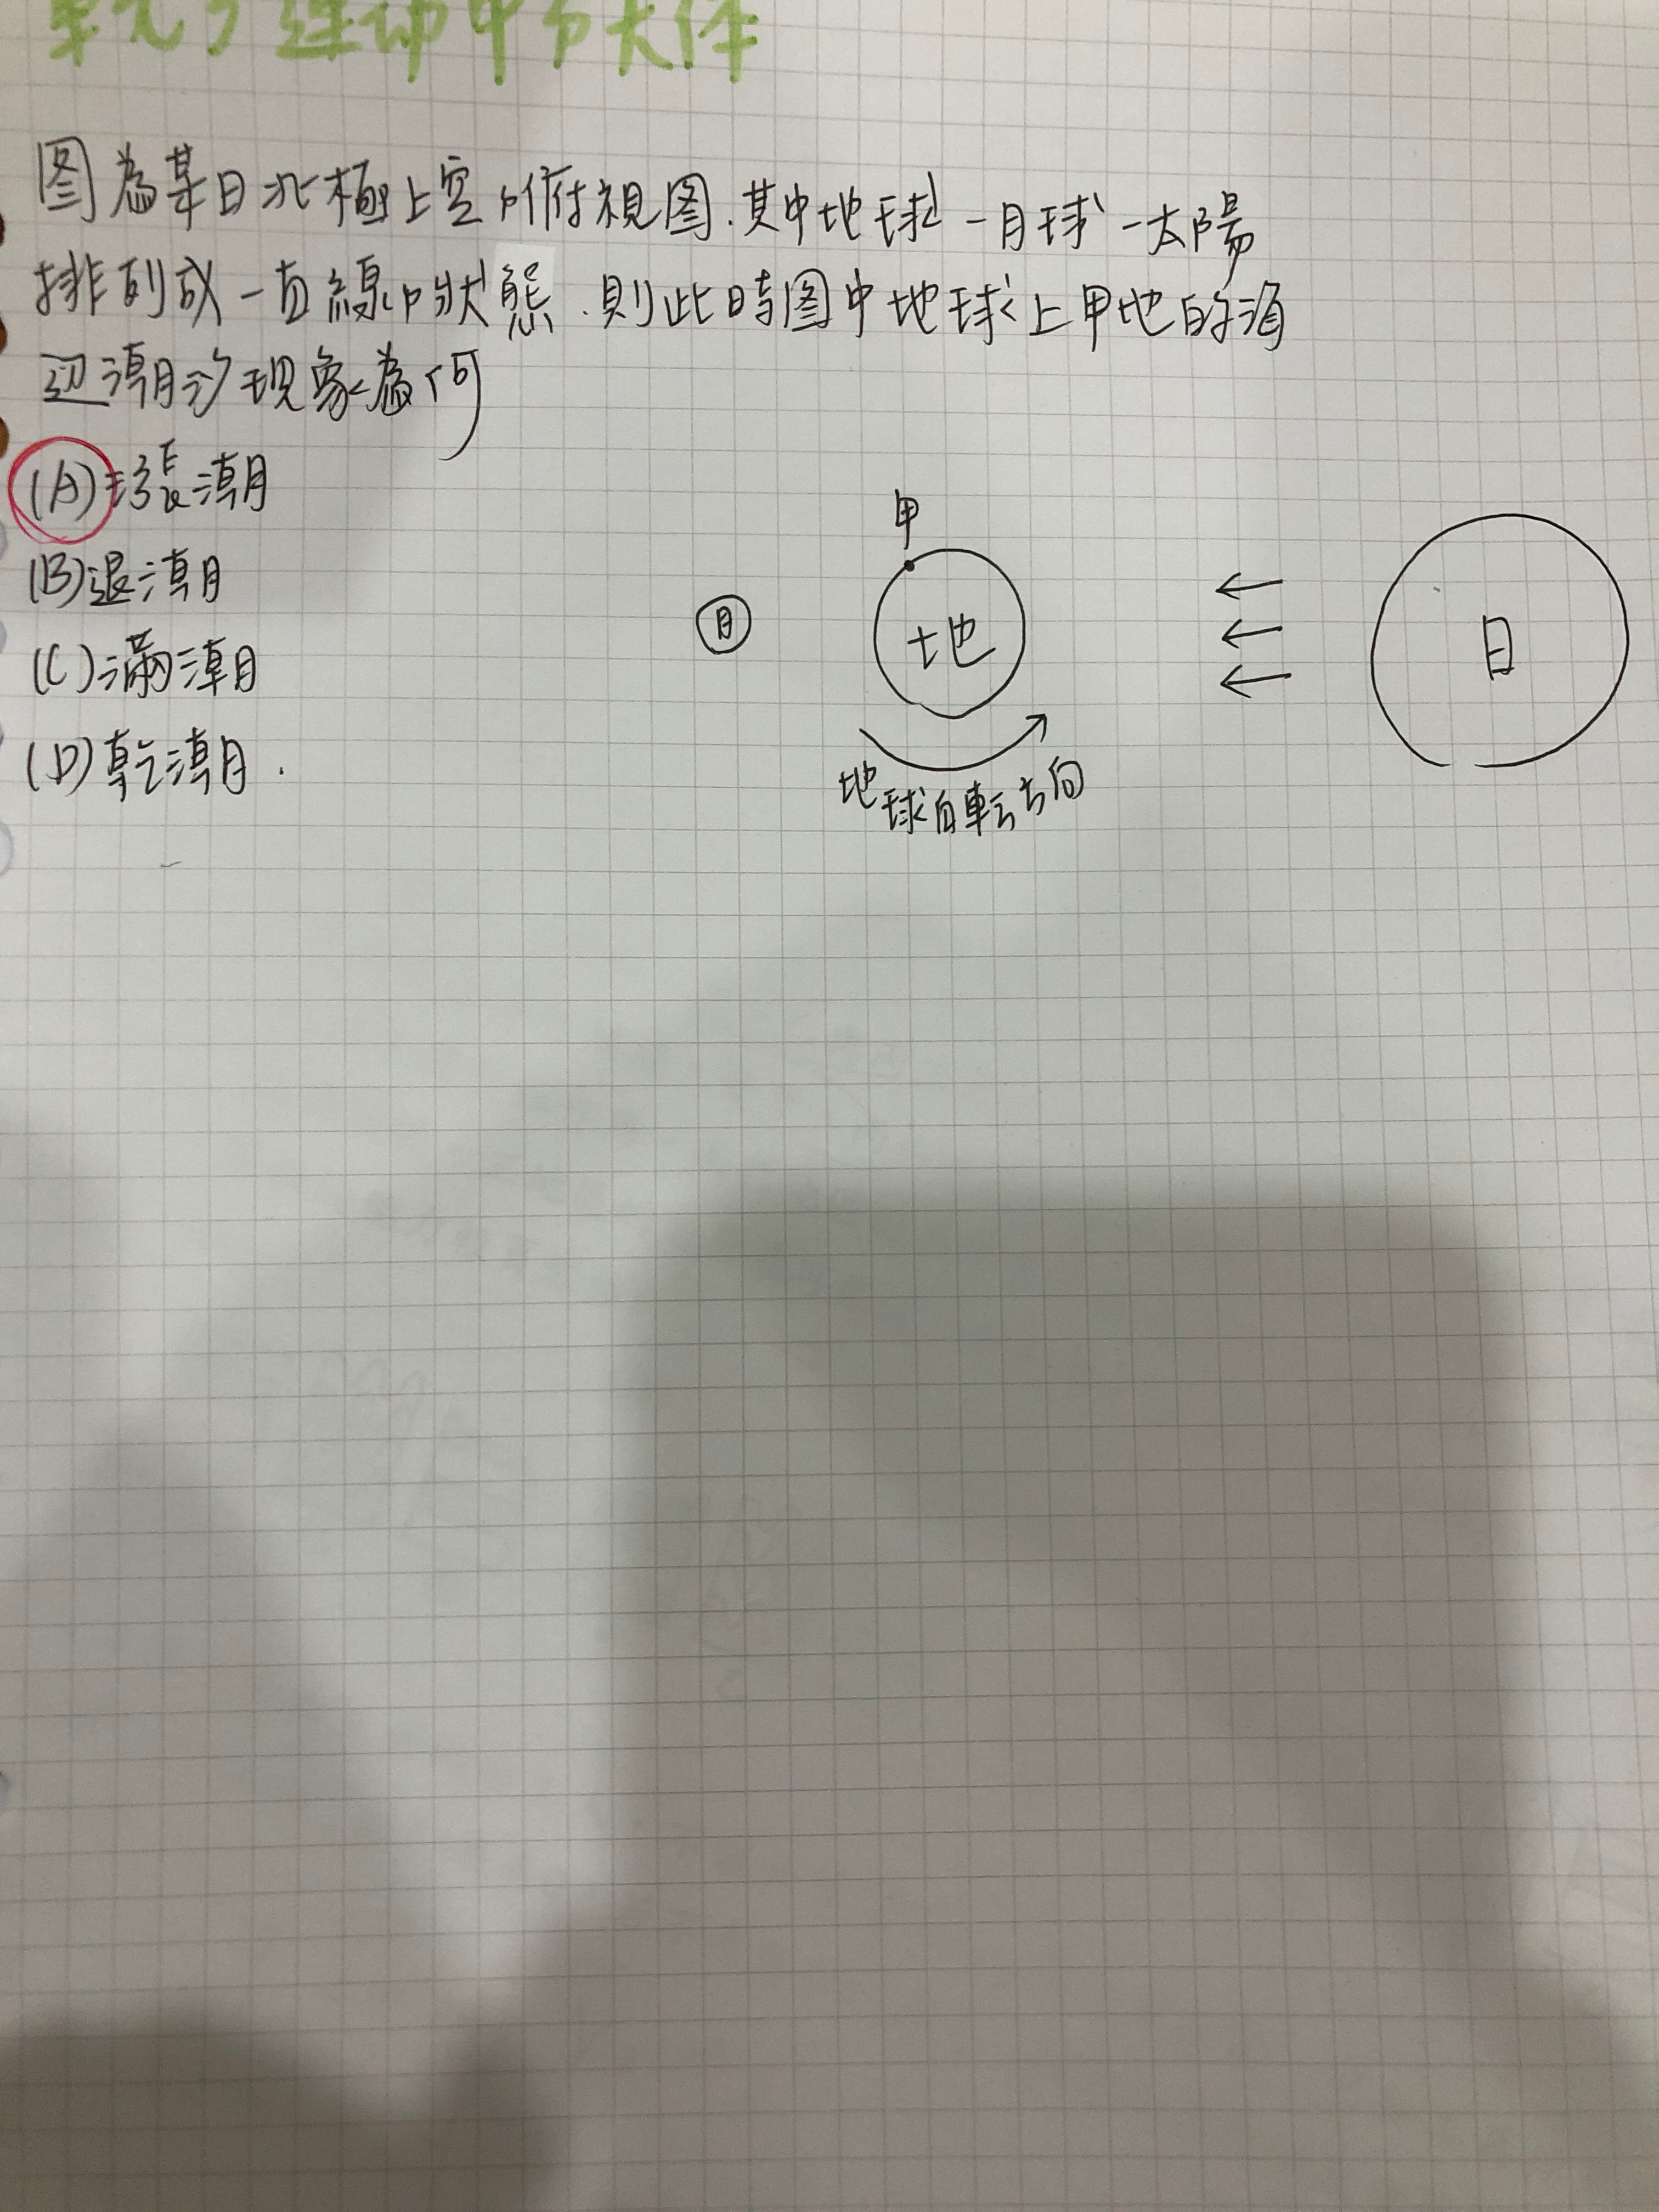 单元5 運动中的天体
图為某日北極上空的俯視图.其中地球-月球-太陽
排列成一直線的狀態.則此時图中地球上甲地的海
边潮汐現象為何
(A)漲潮
(B)退潮
(C)滿潮
(D)乾潮.
甲
月
地
日
地球自転方向